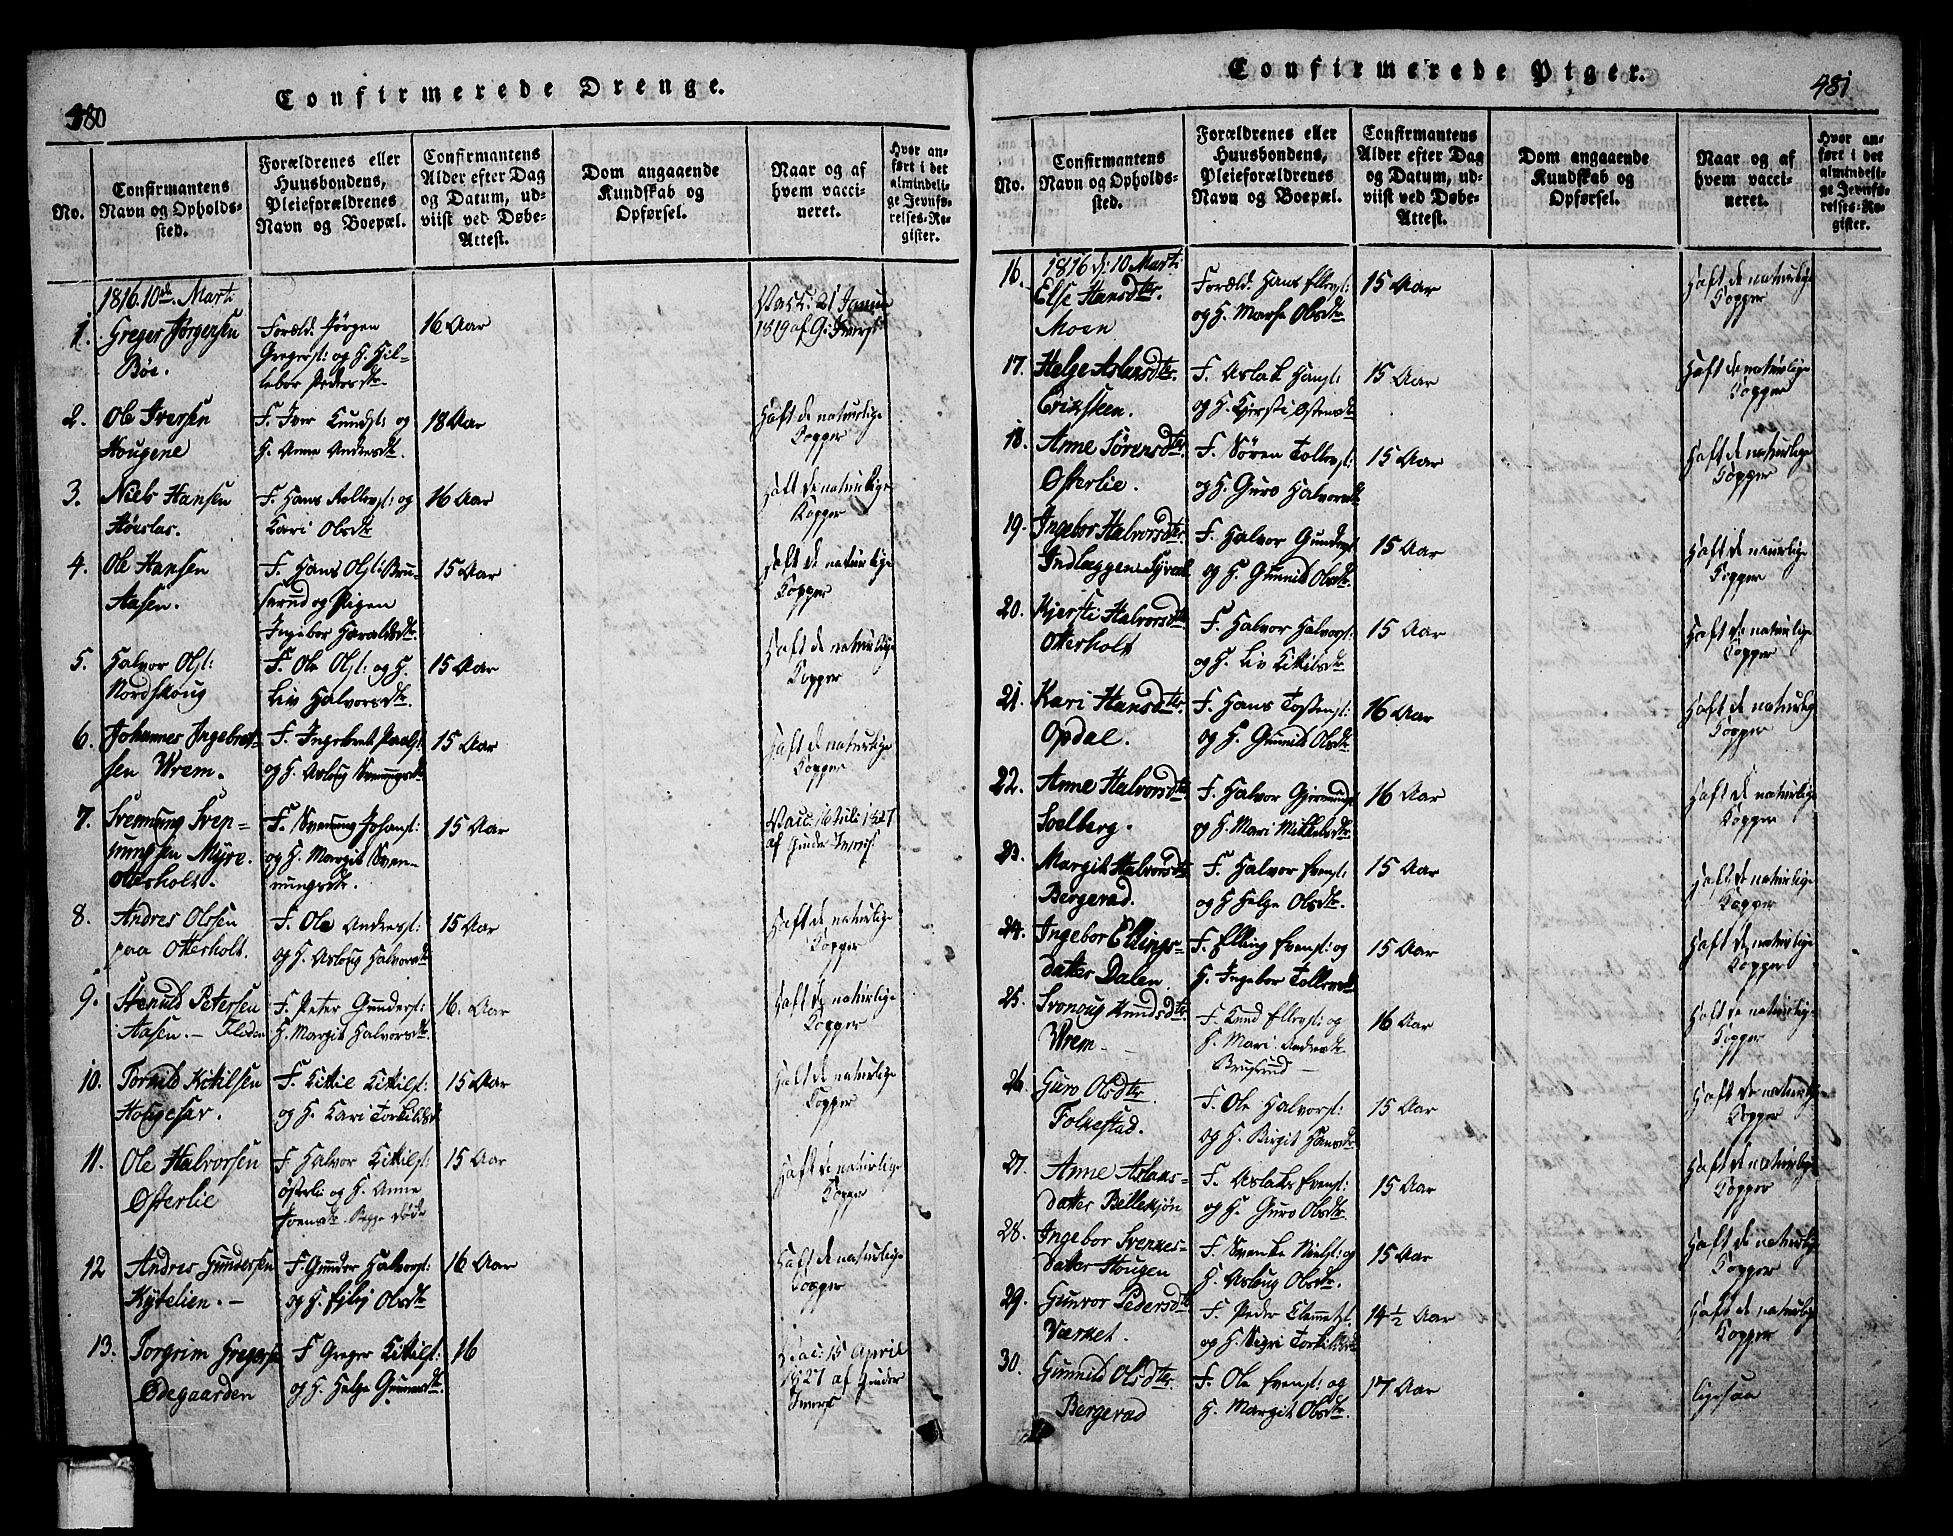 480
Confirmerede Drenge.
No.
Confirmantens
Navn og Opholds-
sted.
Forældrenes eller
Huusbondens,
Pleieforældrenes
Navn og Boepæl.
Confirmantens
Alder efter Dag
og Datum, ud-
viist ved Døbe-
Attest.
Dom angaaende
Kundskab og
Opførsel.
Naar og af
hvem vacci-
neret.
Hvor an-
ført i det
almindeli-
ge Jevnfø-
relses-Re-
gister.
1816. 10de Marti
1. Greger Jørgensen
Bøe.
Foræld. Jörgen
Gregersl: og H. Hil-
lebor Pedersdtr
16 Aar
Vacc: 21 Januar
1819 af G: Iversl
2. Ole Iversen
Hougene
F. Iver Knudsl: og
H. Anne Andersdtr.
18 Aar
Haft de naturlige
Kopper
3. Niels Hansen
Høislas.
F. Hans Aslesl: og
Kari Olsdtr
16 Aar
Haft de naturlige
Kopper
4. Ole Hansen
Aasen.
F. Hans Olsl: Bru-
serud og Pigen
Ingebor Haraldsdtr.
15 Aar
Haft de naturlige
Kopper
5. Halvor Olsl:
Nordskoug
F. Ole Olsl: og H.
Liv Halvorsdtr.
15 Aar
Haft de naturlige
Kopper
6. Johannes Ingebret-
sen Wrem.
F. Ingebret Paalsl
og H. Aslaug Svenungsdtr
15 Aar
Haft de naturlige
Kopper
7. Svennung Sven-
nungsen Myre.
Otterholt.
F. Svenung Johansl:
og H. Margit Sven-
nungsdtr.
15 Aar
Vacc: 16 Juli 1827
af Gunder Iversl.
8. Andres Olssen
paa Otterholt.
F. Ole Andersl:
og H. Aslaug Halvorsdtr
15 Aar
Haft de naturlige
Kopper
9. Stenuld Petersen
Aasen. –
F. Peter Gundersl:
H. Margit Halvorsdtr.
16. Aar
Haft de naturlige
Kopper
10. Torkild Kittilsen
Hougesar.
F. Kittil Kittilsl:
og H. Kari Torkildsdtr
15 Aar
Haft de naturlige
Kopper
11. Ole Halvorsen
Østerlie
F Halvor Kittilsl:
østerli og H. Anne
Joensdtr. Begge døde
15 Aar
Haft de naturlige
Kopper
12 Andres Gundersen
Kytelien. –
F. Gunder Halvorsl:
og H. Eilej Olsdtr
16 Aar
Haft de naturlige
Kopper
13. Torgrim Gregersen
Ødegaarden
F Greger Kittilsl:
og H. Helge Gunnersdtr.
16
Vac: 15 April
1827 af Gunder
Iversl
Confirmerede Piger.
481
No.
Confirmantens
Navn og Opholds-
sted.
Forældrenes eller
Huusbondens,
Pleieforældrenes
Navn og Boepæl.
Confirmantens
Alder efter Dag
og Datum, ud-
viist ved Døbe-
Attest.
Dom angaaende
Kundskab og
Opførsel.
Naar og af
hvem vacci-
neret.
Hvor an-
ført i det
almindeli-
ge Jevnfø-
relses-Re-
gister.
16. 1816 d: 10 Marti
Else Hansdtr.
Moen
Foræld. Hans Ellevsl:
og H. Marthe Olsdtr.
15 Aar
Haft de naturlige
Kopper
17. Helge Aslaksdtr.
Erikssteen.
F. Aslak Hansl:
og H. Kjersti Ostensdtr
15 Aar
Haft de naturlige
Kopper
18. Anne Sørensdtr
Østerlie.
F. Sören Tollevsl:
og H. Guro Halvorsdtr
15 Aar
Haft de naturlige
Kopper
19. Ingebor Halvorsdtr.
Indlæggen
F. Halvor Gundersl
og H. Gunnild Olsdtr
15 Aar
Haft de naurlige
Kopper
20. Kjersti Halvorsdtr.
Otterholt
F. Halvor Halvorsl:
og H. Liv Kittilsdtr
15 Aar
Haft de naturlige
Kopper
21. Kari Hansdtr.
Opdal.
F. Hans Tostensl:
og H. Gunnild Olsdtr
16 Aar
Haft de naturlig
Kopper
22. Anne Halvorsdtr.
Soelberg.
F. Halvor Gjermundsl
og H. Mari Mikkelsdtr.
16 Aar
Haft de naturlige
Kopper
23. Margit Halvorsdtr
Bergerød.
F. Halvor Evensl:
og H Helge Olsdtr.
15 Aar
Haft de naturlige
Kopper
24. Ingebor Ellings-
datter Dalen.
F. Elling Evensl: og
H. Ingebor Tollevsdtr
15 Aar
Haft de naturlige
Kopper
25. Svonoug Knudsdtr
Wrem –
F. Knud Ellevsl: og
H. Mari Andersdtr
Bruserud –
16 Aar
Haft de naturlige
Kopper
26. Guro Olsdtr.
Folkestad.
F. Ole Halvorsl:
og H. Birgit Hansdtr
15 Aar
Haft de naturlige
Kopper
27. Anne Aslaks-
datter Bellekjøn
F. Aslak Evensl:
og H. Guro Olsdtr.
15 Aar
Haft de naturlige
Kopper
28. Ingebor Svenkes-
datter Hougen
F. Svenke Nielsl: og
H. Aslaug Olsdtr.
15 Aar
Haft de naturlig
Kopper
29. Gunvor Pedersdtr
Værket.
F. Peder Clemetsl.
og H. Sigri Torkildsdtr
14½ Aar
Haft de naturlig
Kopper
30. Gunnild Olsdtr.
Bergerød
F. Ole Evensl: og
H. Margit Olsdtr.
17 Aar
ligesaa